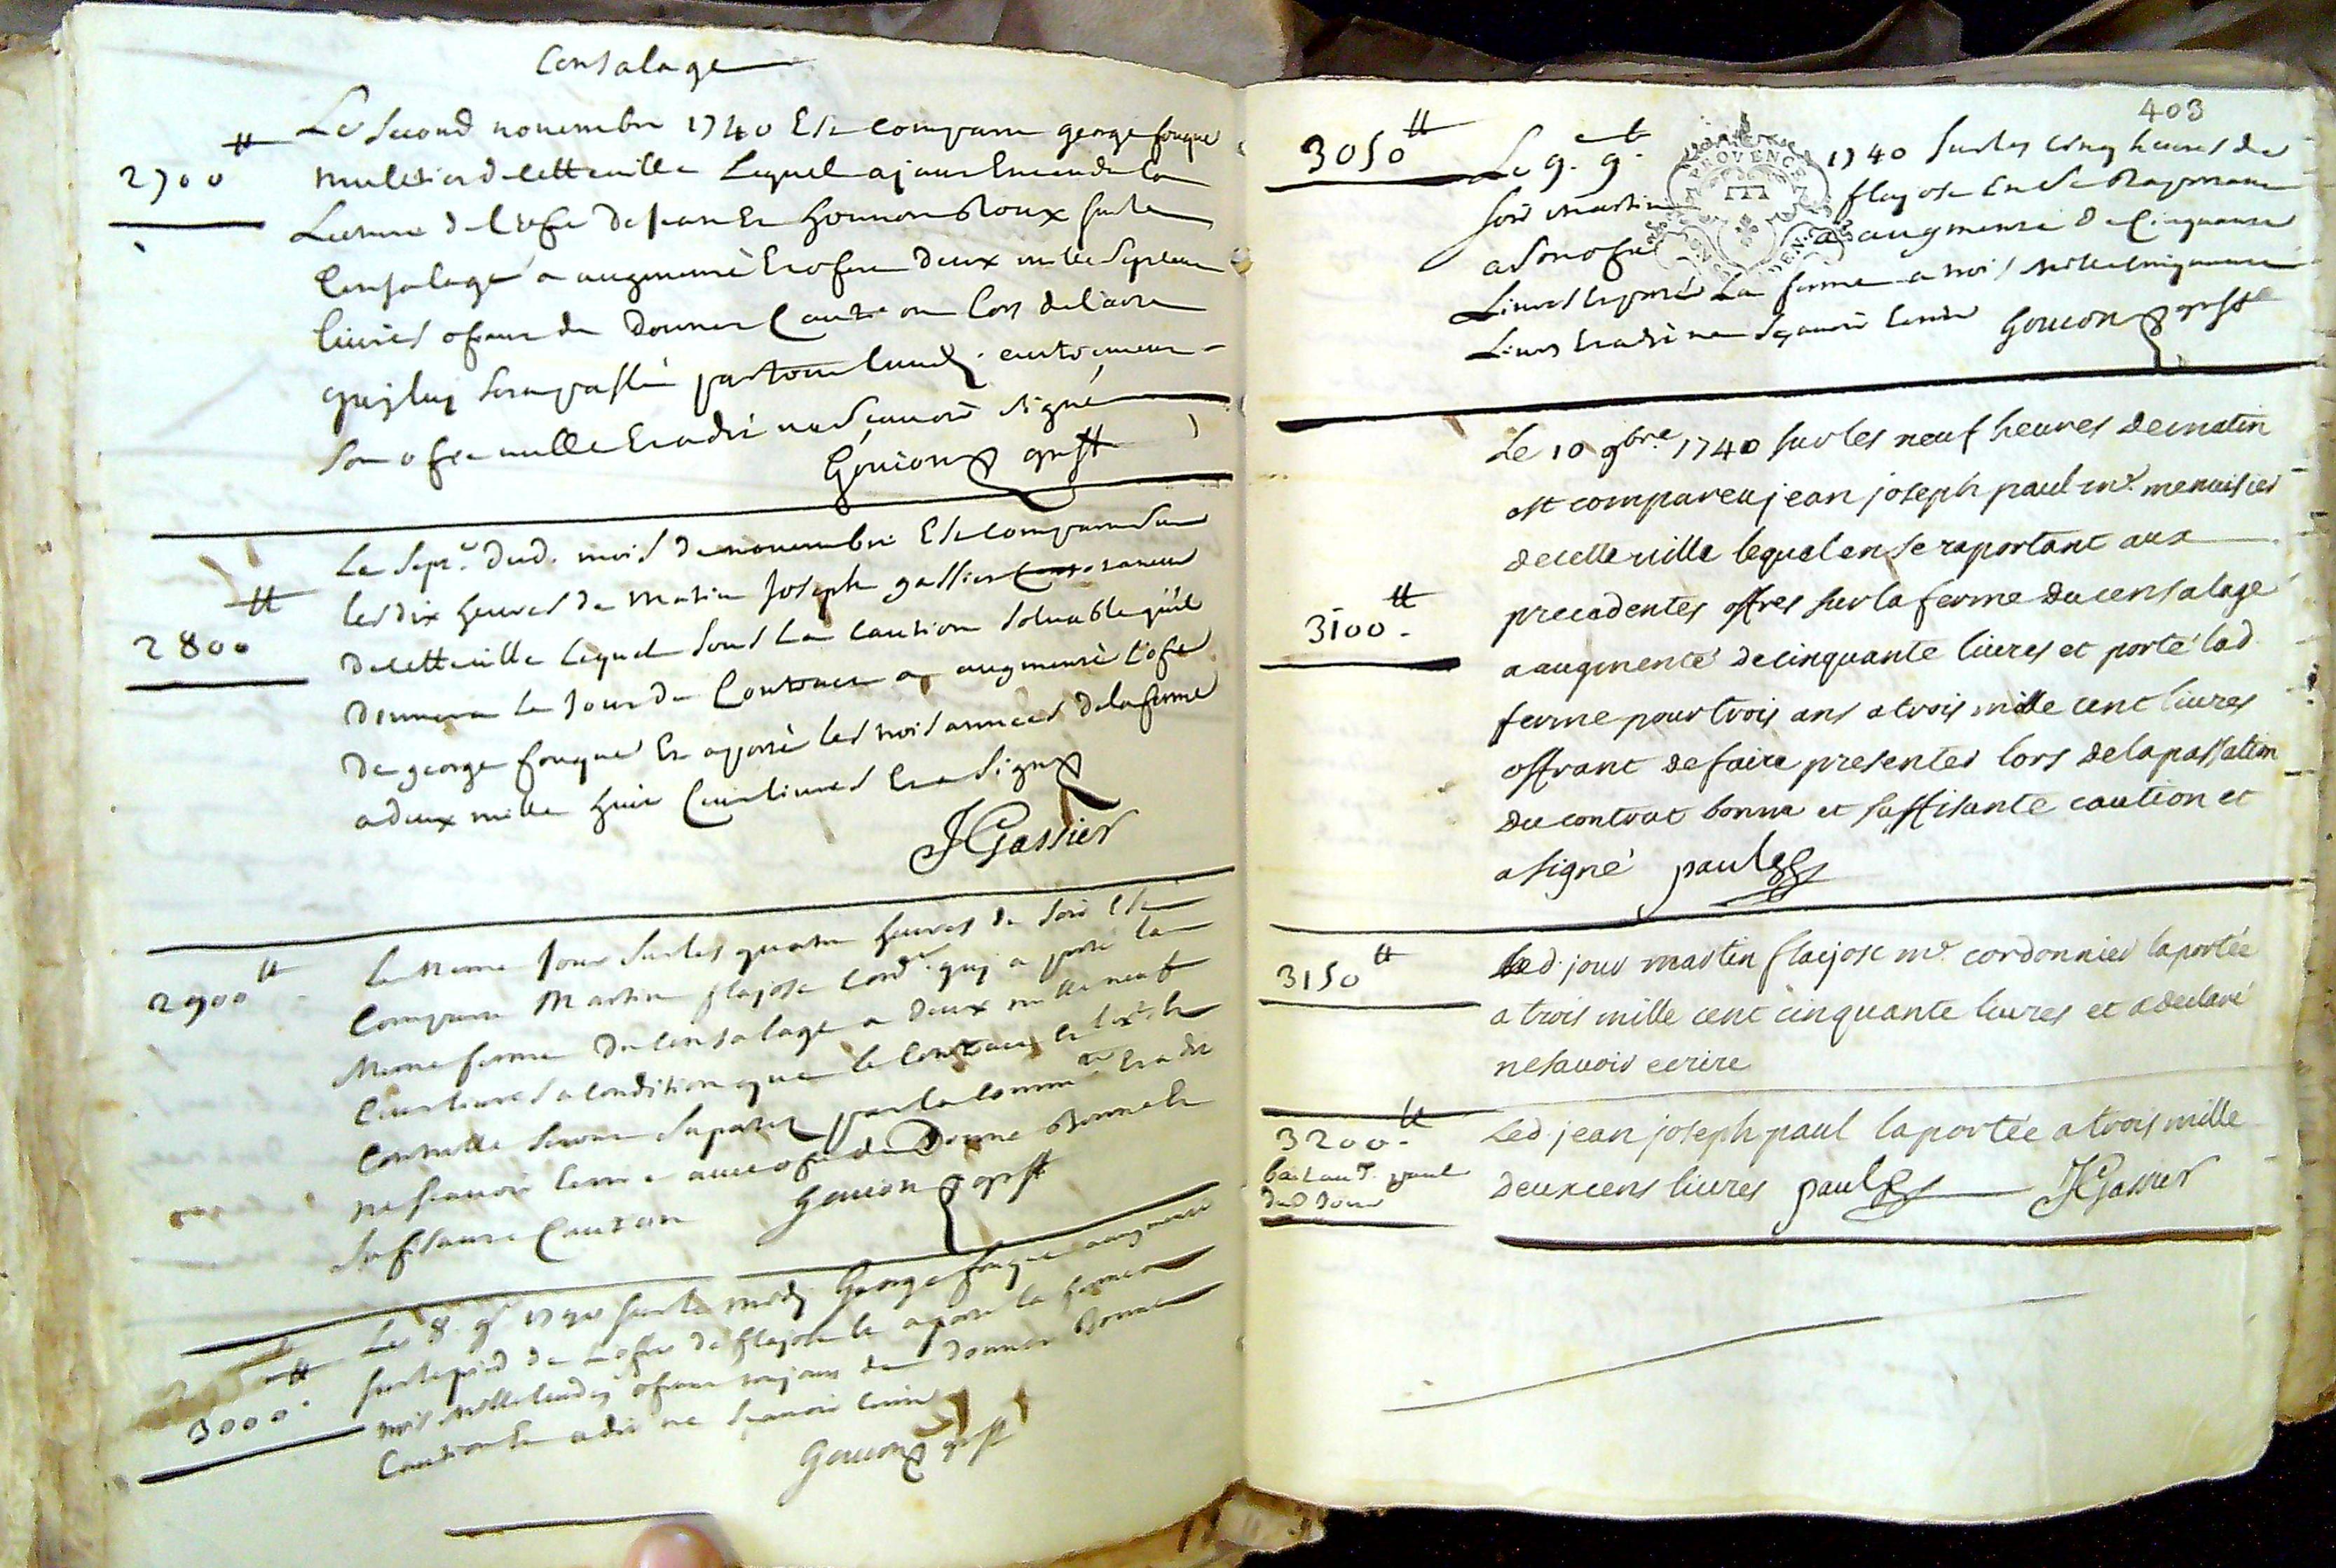 Censalage
2700 ₶
Le second novembre 1740 Est comparu george fouque
muletier de cette ville Lequel ajant Entendu la
Lecture de l'ofre de jean Et honnoré Roux sur le
Censalage a augmenté Et ofre deux mille sept cens
livres ofrant de donner caution lors de l'acte
quy luy sera passé
son ofre nulle Et a dit ne scavoir signé
Goucon greff
2800 ₶
Le sept.e dud. mois de novembre Est comparu sur
les dix heures du matin Joseph gassier
de cette ville lequel sous la caution solvable qu'il
donnera le jour du Contract a augmenté l'ofre
de george fouque Et a porté les trois années de la ferme
a deux mille huit Cens livres Et a signé
JGassier
2900 ₶
Le meme jour sur les quatre heures du soir Est
Comparu Martin flajose Cord.r quy a porté la
meme ferme du Censalage a deux mille neuf
Cens livres a condition que le Contract et l'ext.t Et
Controlle seront suportes par la comm.té Et a dit
ne scavoir Ecrire avec ofre de donné Bonne Et
sufisante Caution Goucon greff
3000 ₶
Le 8 9bre 1740 sur le midy George fouque augmente
sur le pied de l'ofre de flajose Et a porté la ferme a
trois mille livres ofrant toujours de donner Bonne
Caution Et a dit ne scavoir Ecrire
Goucon greff
403
3050 ₶
Le 9.e 9b. 1740 sur les cinq heures du
soir Martin flajose En se Raportant
a son ofre a augmenté de Cinquante
Livres Et porté La ferme a trois mille cinquante
Livres Et a dit ne sçavoir Ecrire Goucon greff
PROVENCE
3100 ₶
Le 10 9bre 1740 sur les neuf heures de matin
est compareu jean joseph paul m.e menuisier
de cette ville lequel en se raportant aux
precedentes offres sur la ferme du censalage
a augmenté de cinquante livres et porté lad.
ferme pour trois ans a trois mille cent livres
offrant de faire presenter lors de la passation
du contrat bonne et suffisante caution et
a signé paul
3150 ₶
Led. jour martin flajose m.e cordonnier la portée
a trois mille cent cinquante livres et a declaré
ne savoir ecrire
3200 ₶
paul
dud jour
Led. jean joseph paul la portée a trois mille
deux cens livres paul JGassier